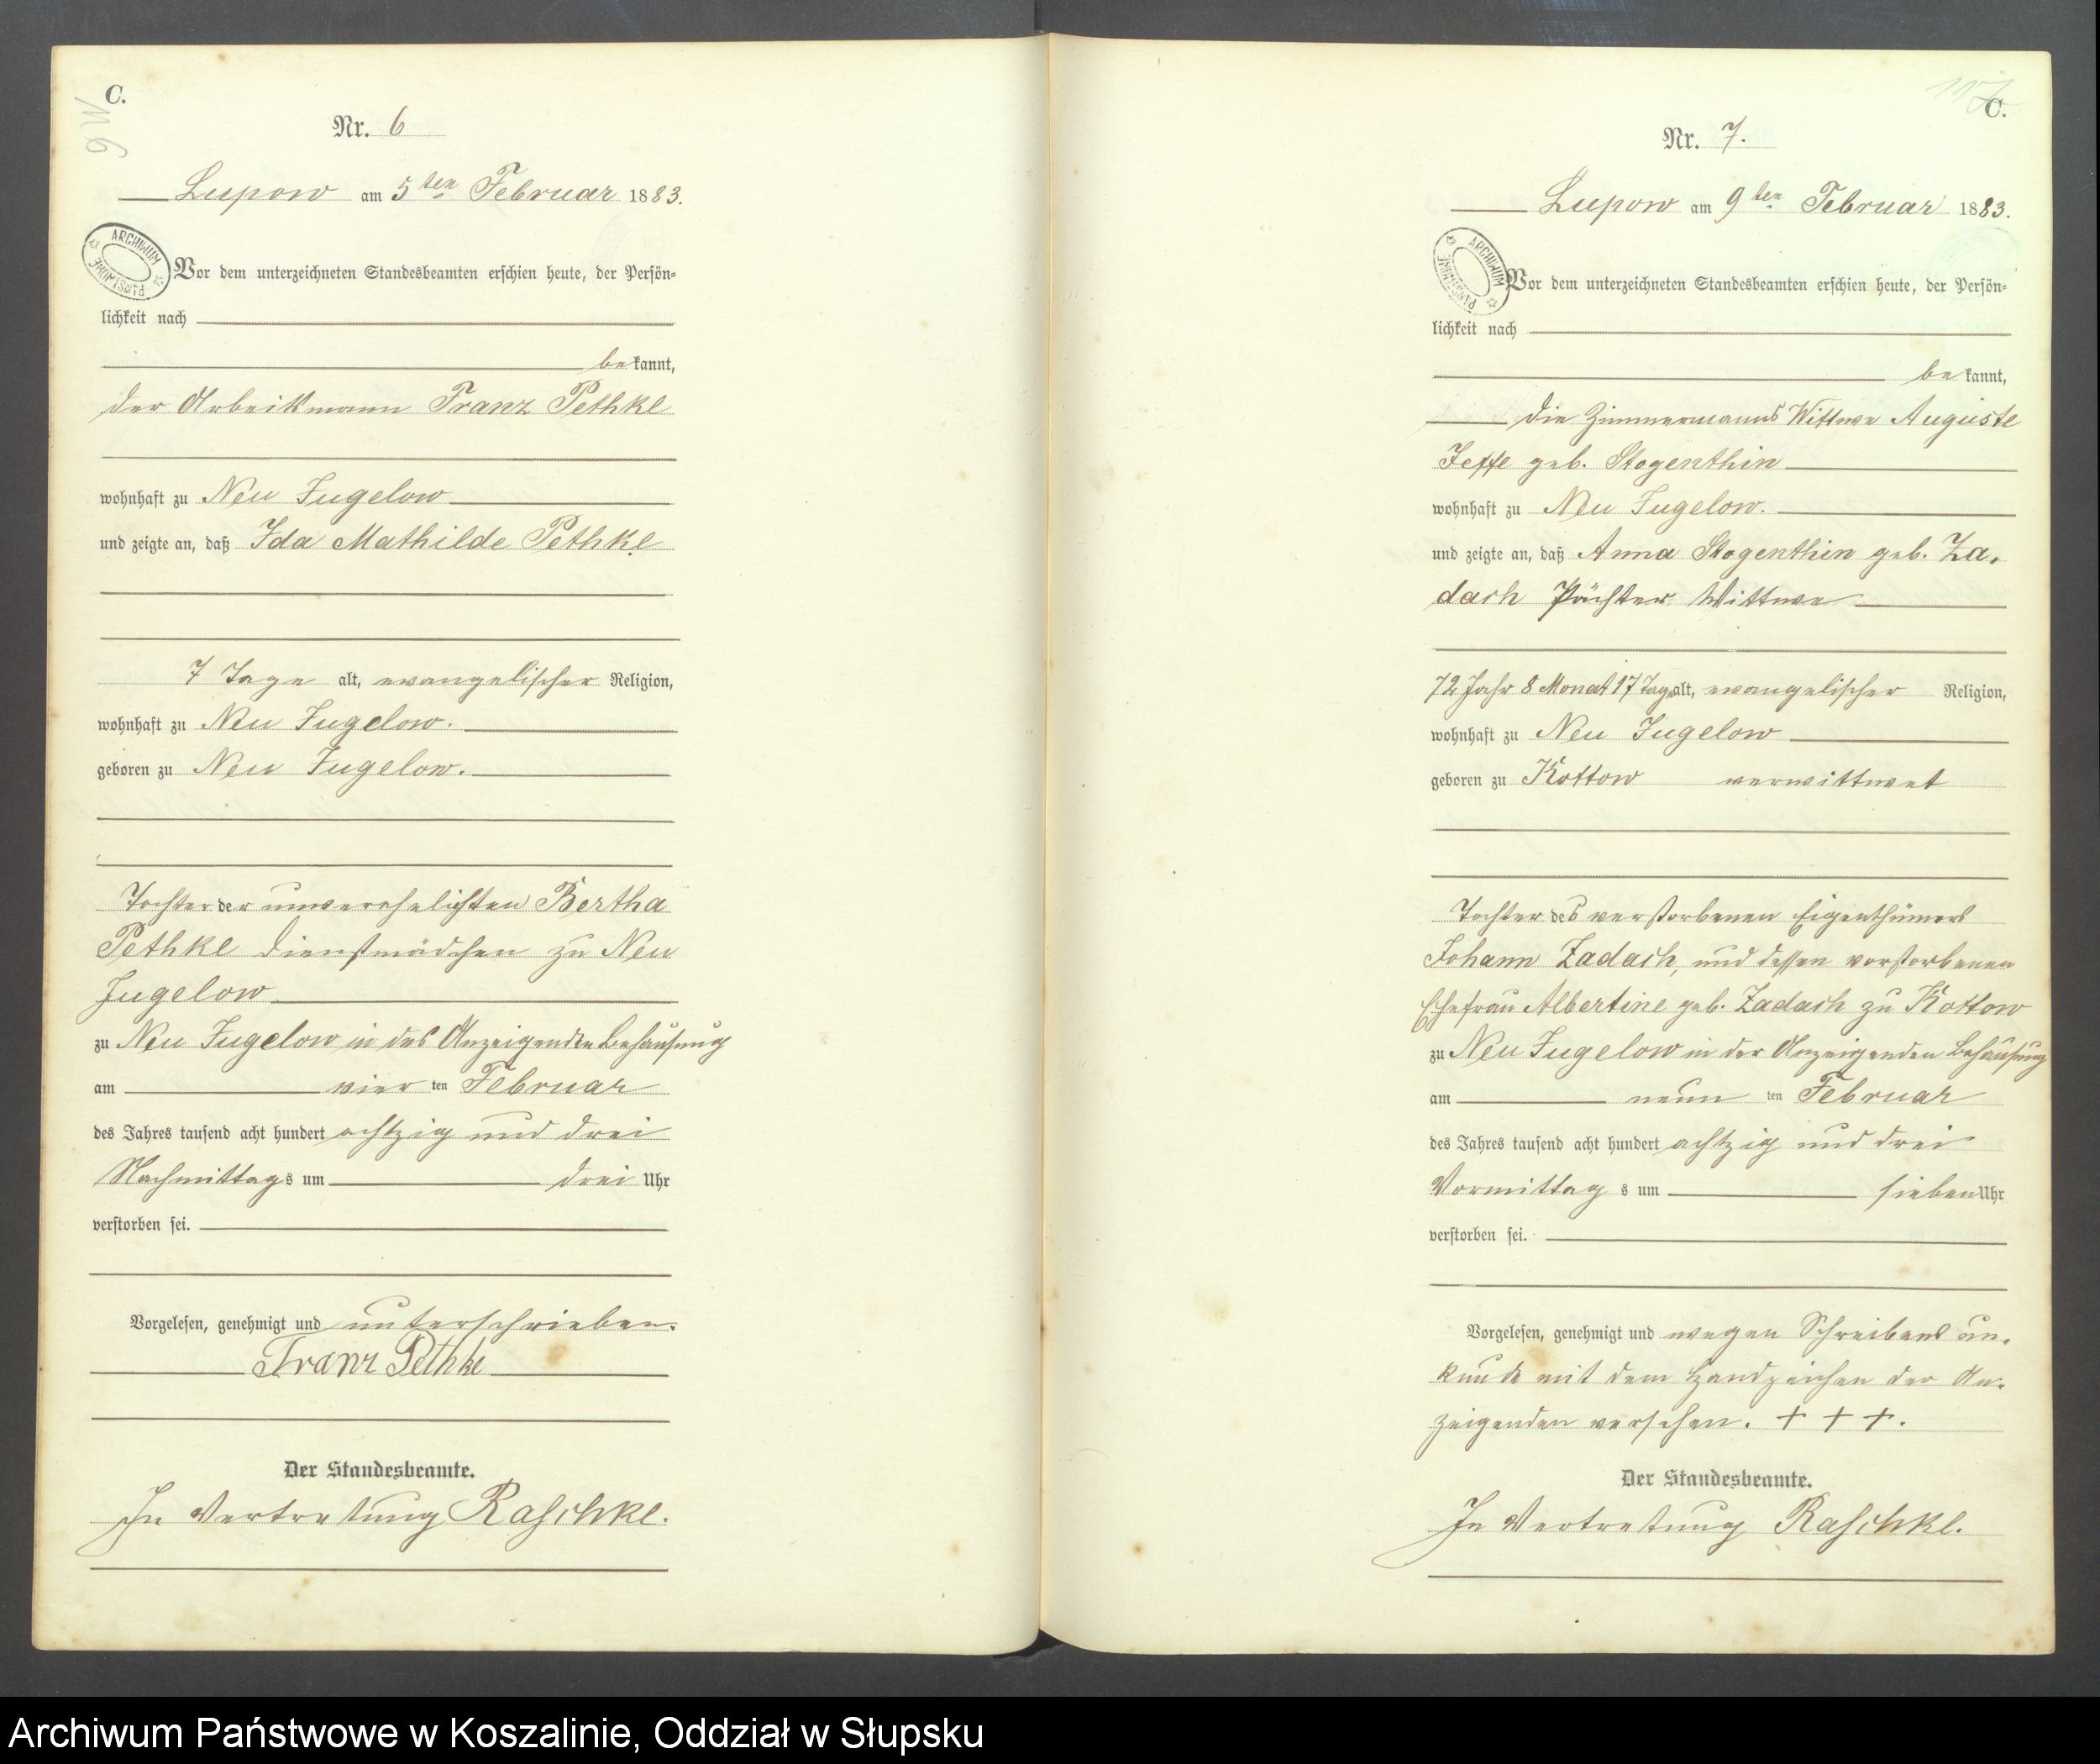 C.
Nr. 6
Lupow am 5ten Februar 1883.
ARCHIWUM PAŃSTWOWE
Vor dem unterzeichneten Standesbeamten erschien heute, der Persön-
lichkeit nach
bekannt,
der Arbeitsmann Franz Pethke
wohnhaft zu Neu Jugelow
und zeigte an, daß Ida Mathilde Pethke
7 Tage alt, evangelischer Religion,
wohnhaft zu Neu Jugelow.
geboren zu Neu Jugelow.
Tochter der unverehelichten Bertha
Pethke Dienstmädchen zu Neu
Jugelow
zu Neu Jugelow in des Anzeigenden Behausung
am vier ten Februar
des Jahres tausend acht hundert achtzig und drei
Nachmittags um drei Uhr
verstorben sei.
Vorgelesen, genehmigt und unterschrieben.
Franz Pethke
Der Standesbeamte.
In Vertretung Raschke.
C.
Nr. 7.
Lupow am 9ten Februar 1883.
ARCHIWUM PAŃSTWOWE
Vor dem unterzeichneten Standesbeamten erschien heute, der Persön-
lichkeit nach
bekannt,
die Zimmermanns Wittwe Auguste
geb. Stogenthin
wohnhaft zu Neu Jugelow.
und zeigte an, daß Anna Stogenthin geb. Za-
dach Pächter Wittwe
72 Jahr 8 Monat 17 Tage alt, evangelischer Religion,
wohnhaft zu Neu Jugelow
geboren zu Kottow verwittwet
Tochter des verstorbenen Eigenthümers
Johann Zadach, und dessen verstorbenen
Ehefrau Albertine geb. Zadach zu Kottow
zu Neu Jugelow in der Anzeigenden Behausung
am neun ten Februar
des Jahres tausend acht hundert achtzig und drei
Vormittag s um sieben Uhr
verstorben sei.
Vorgelesen, genehmigt und wegen Schreibens un-
kunde mit dem Handzeichen der An-
zeigenden versehen. + + +.
Der Standesbeamte.
In Vertretung Raschke.
Archiwum Państwowe w Koszalinie, Oddział w Słupsku